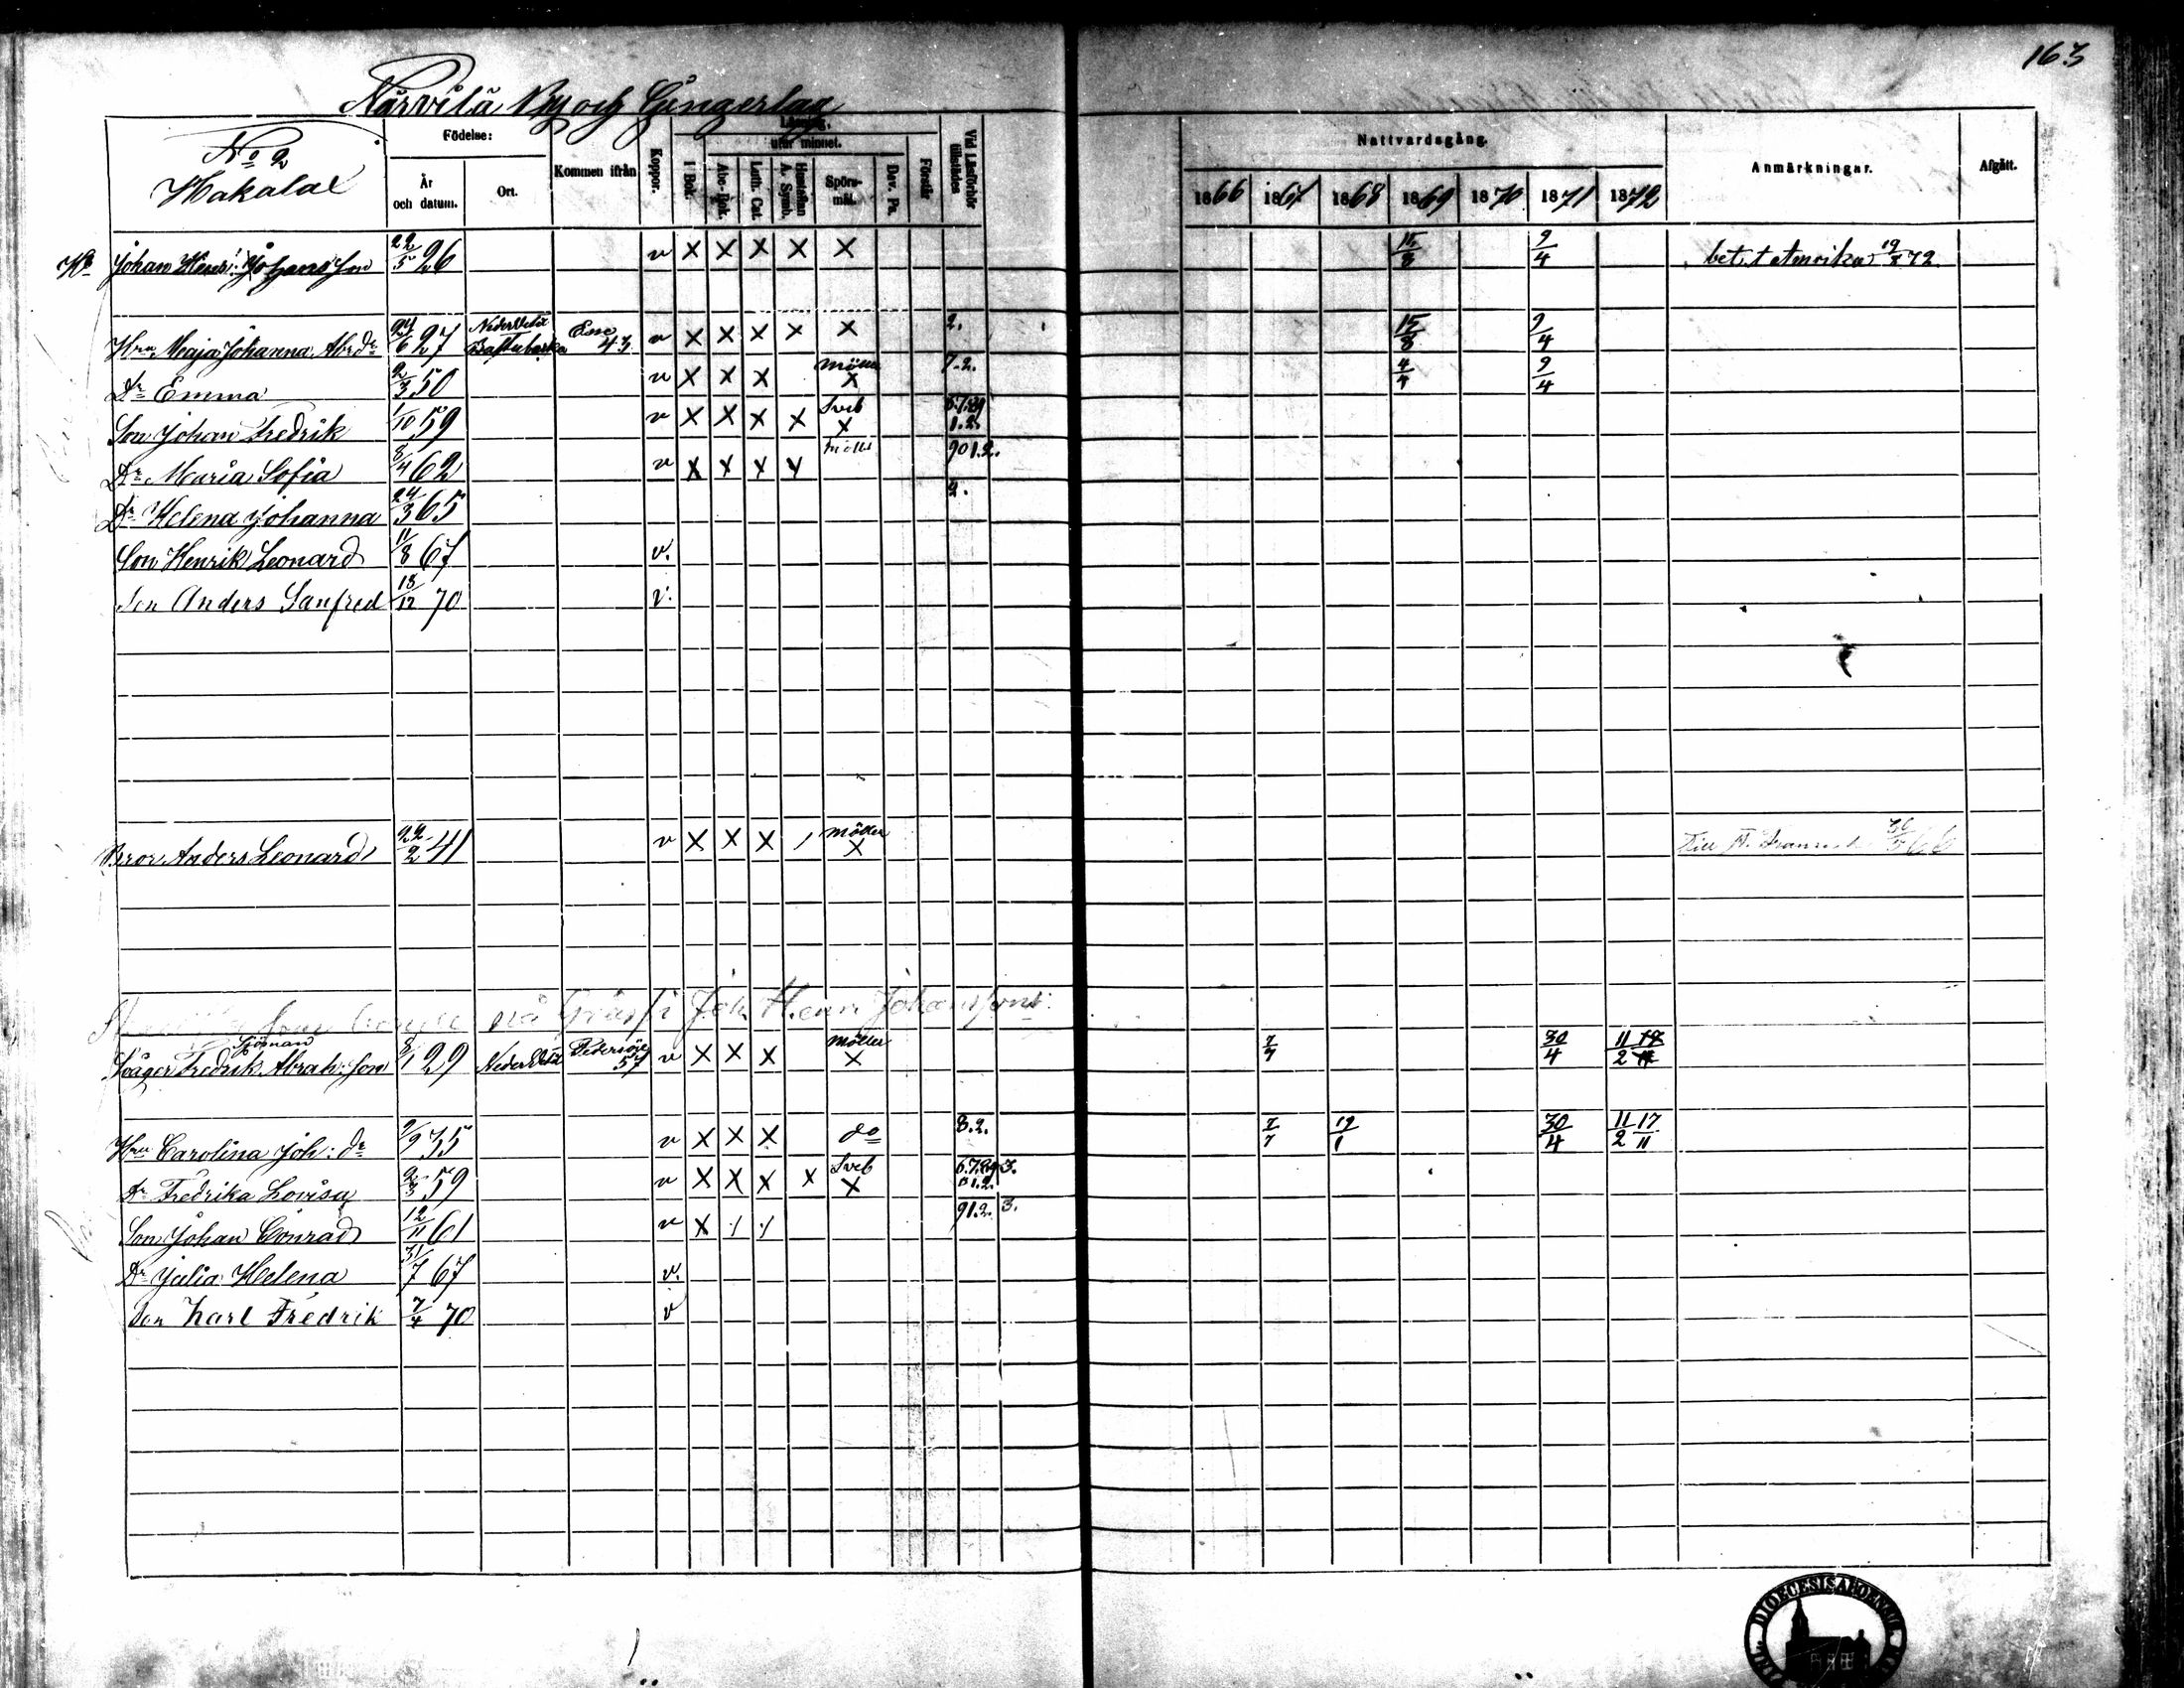 163
Närvilä By och Gingerlag
No 2
Hakalax
Födelse:
År och datum.
Ort.
Kommen ifrån
Koppor.
utur minnet.
I Bok.
Abc-Bok.
Luth. Cat.
Hustaflan A. Symb.
Spörsmål.
Dav. Ps.
Förstår
Vid Läsförhör tillstädes
Nattvardsgång.
1866 1867 1868 1869 1870 1871 1872
Anmärkningar.
Afgått.
Johan Henr: Johansson 22/5 26 v X X X X X 15/8 9/4 bet. t Amerika 19/8 72
Hru Maja Johanna Abr:dr 24/6 27 NederVetil 43 v X X X X X 2. 15/8 9/4
Dr Emma 2/3 50 v X X X X 7.2. 4/4 9/4
Son Johan Fredrik 1/10 59 v X X X X Sveb X 1.2.
Dr Maria Sofia 8/4 62 v X X X X 901.2.
Dr Helena Johanna 24/3 65 2.
Son Henrik Leonard 11/8 67 v.
Son Anders Sanfred 18/12 70 v.
Bror Anders Leonard 22/2 41 v X X X / Möller X 66
på Joh. Henr. Johanssons
Sjöman
Svåger Fredrik Abrah:son 8/1 29 NederVetil Pedersöre 57 v X X X Möller X 7/7 30/4 11/2 17/11
Hru Carolina Joh:dr 9/9 35 v X X X do 8.2. 7/7 19/1 30/4 11/2 17/11
Dr Fredrika Lovisa 2/3 59 v X X X X Sveb X 3.
Son Johan Conrad 12/11 61 v X / / 91.2. 3.
Dr Julia Helena 31/7 67 v.
Son Karl Fredrik 7/4 70 v
DIOECESIS ABOENSIS